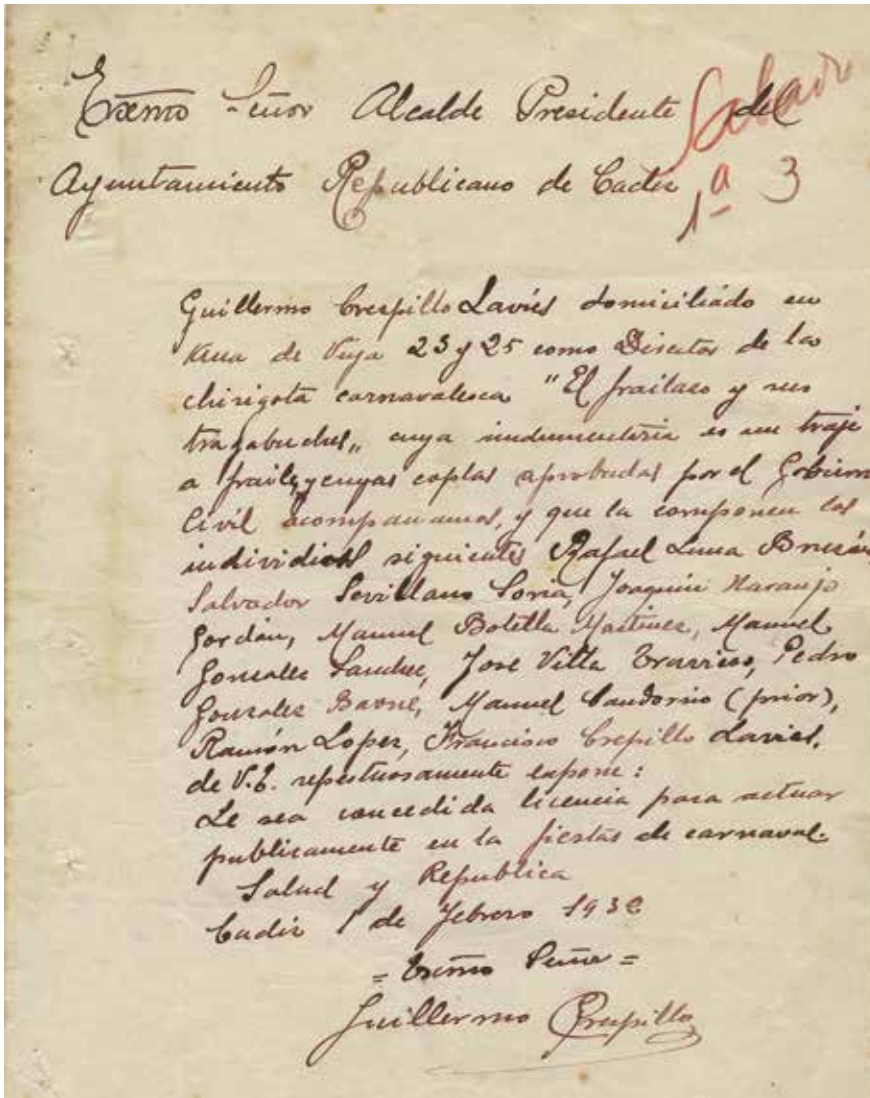 Exemo Señor Alcalde Presidente del
Sabado
Ayuntamiento Republicano de Cadiz
1ª 3
Guillermo Crespillo Laviés domiciliado en
de Vega 23 y 25 como Director de la
chirigota carnavalesca "El frailaso y sus
tragabuches„ cuya indumentaria es un traje
a fraile, y cuyas coplas aprobadas por el Gobierno
Civil acompañamos, y que la componen los
individios siguientes Rafael Luna
Salvador Sevillano Soria, Joaquin Naranjo
Jordán, Manuel Botella Martinez, Manuel
Gonzalez Sanchez, José Villa Pedro
Gonzalez Manuel (prior),
Ramón Lopez, Francisco Crepillo Laviés,
de V.E. repestuosamente expone:
Le sea concedida licencia para actuar
publicamente en la fiestas de carnaval.
Salud y Republica
Cadiz 1 de Febrero 193
= Exmo Señor =
Guillermo Crespillo